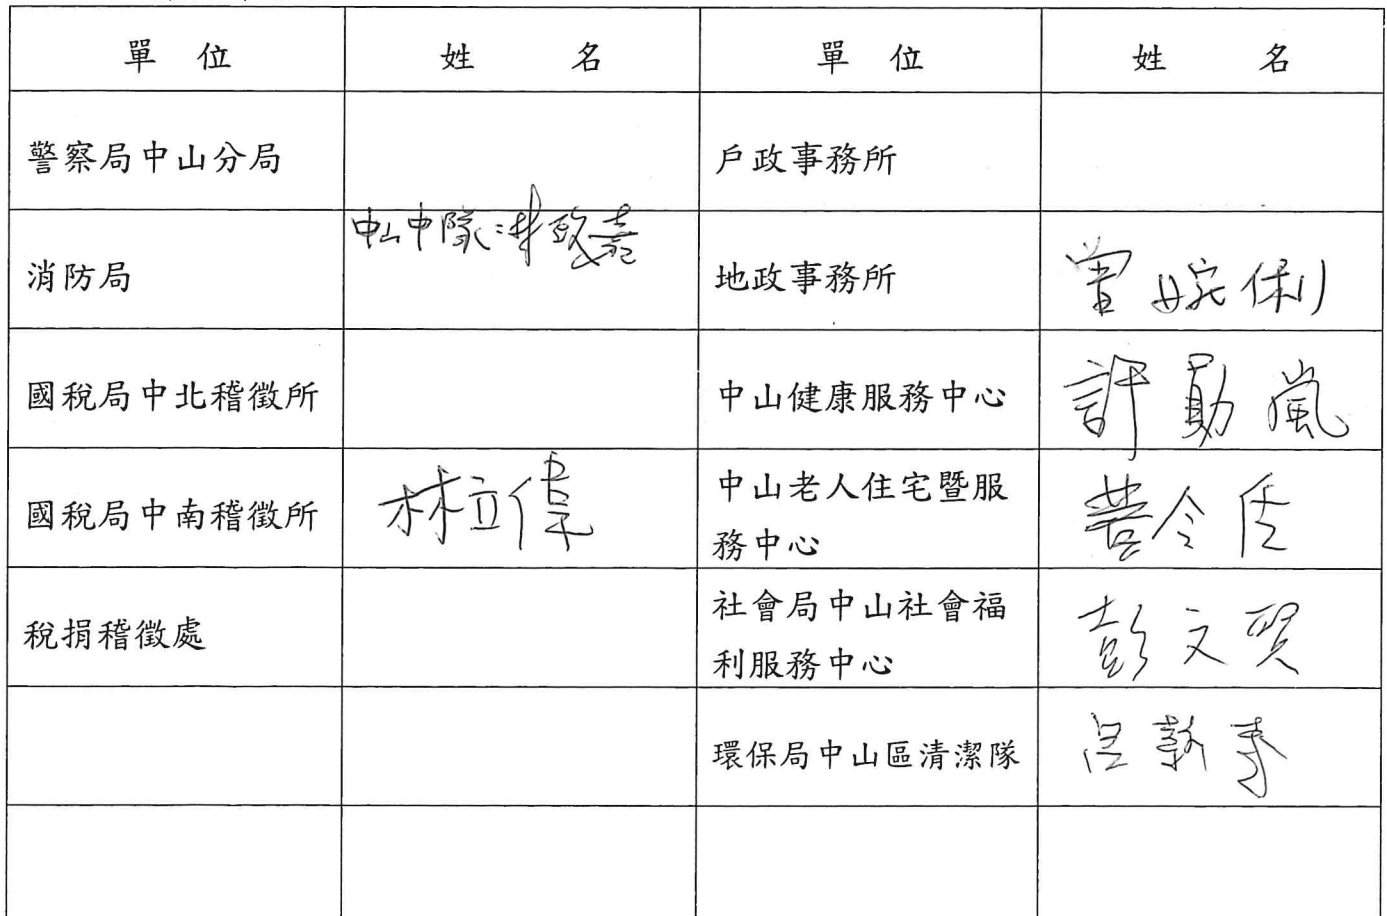 單位 姓名 單位 姓名
警察局中山分局 戶政事務所
消防局 中山中隊: 地政事務所 曾婉俐
國稅局中北稽徵所 中山健康服務中心 許勛嵐
國稅局中南稽徵所 林立偉 中山老人住宅暨服
務中心
稅捐稽徵處 社會局中山社會福 彭文賢
利服務中心
環保局中山區清潔隊 呂